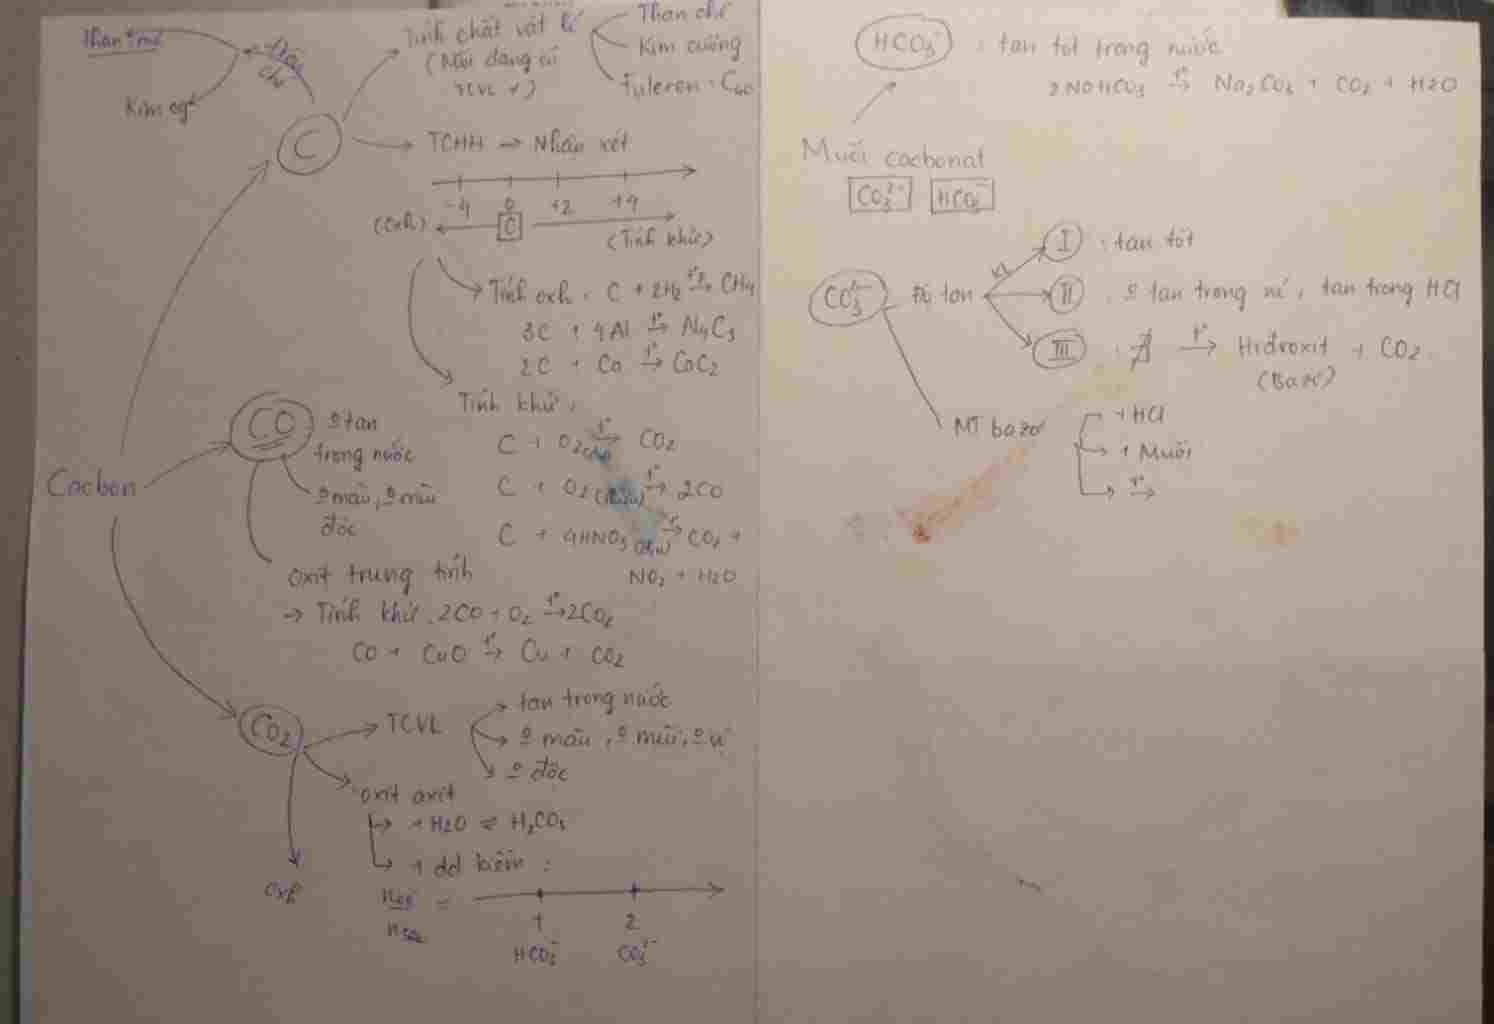 than mỏ
Điều
chế
Kim cg
Tính chất vật lí
(Mỗi dạng có
TCVL ≠)
Than chì
Kim cương
Fuleren: C60
C
TCHH → Nhận xét
-4 0 +2 +4
(Oxh) C (Tính khử)
Tính oxh: C + 2H2 t°→ CH4
3C + 4Al t°→ Al4C3
2C + Ca t°→ CaC2
Tính khử:
C + O2 t°→ CO2
C + O2 t°→ 2CO
C + 4HNO3 t°→ CO2 +
NO2 + H2O
Cacbon
CO
o tan
trong nước
o màu, o mùi
độc
oxit trung tính
→ Tính khử: 2CO + O2 t°→ 2CO2
CO + CuO t°→ Cu + CO2
CO2
TCVL
tan trong nước
o màu, o mùi, o vị
o độc
oxit axit
+ H2O ⇌ H2CO3
+ dd kiềm:
oxh
1 2
HCO3- CO3 2-
HCO3- : tan tốt trong nước
2NaHCO3 t°→ Na2CO3 + CO2 + H2O
Muối cacbonat
CO3 2- HCO3-
CO3 2- Độ tan
KL
I : tan tốt
II : o tan trong nc, tan trong HCl
III : t°→ Hiđroxit + CO2
(Bazơ)
MT bazơ
+ HCl
+ Muối
t°→